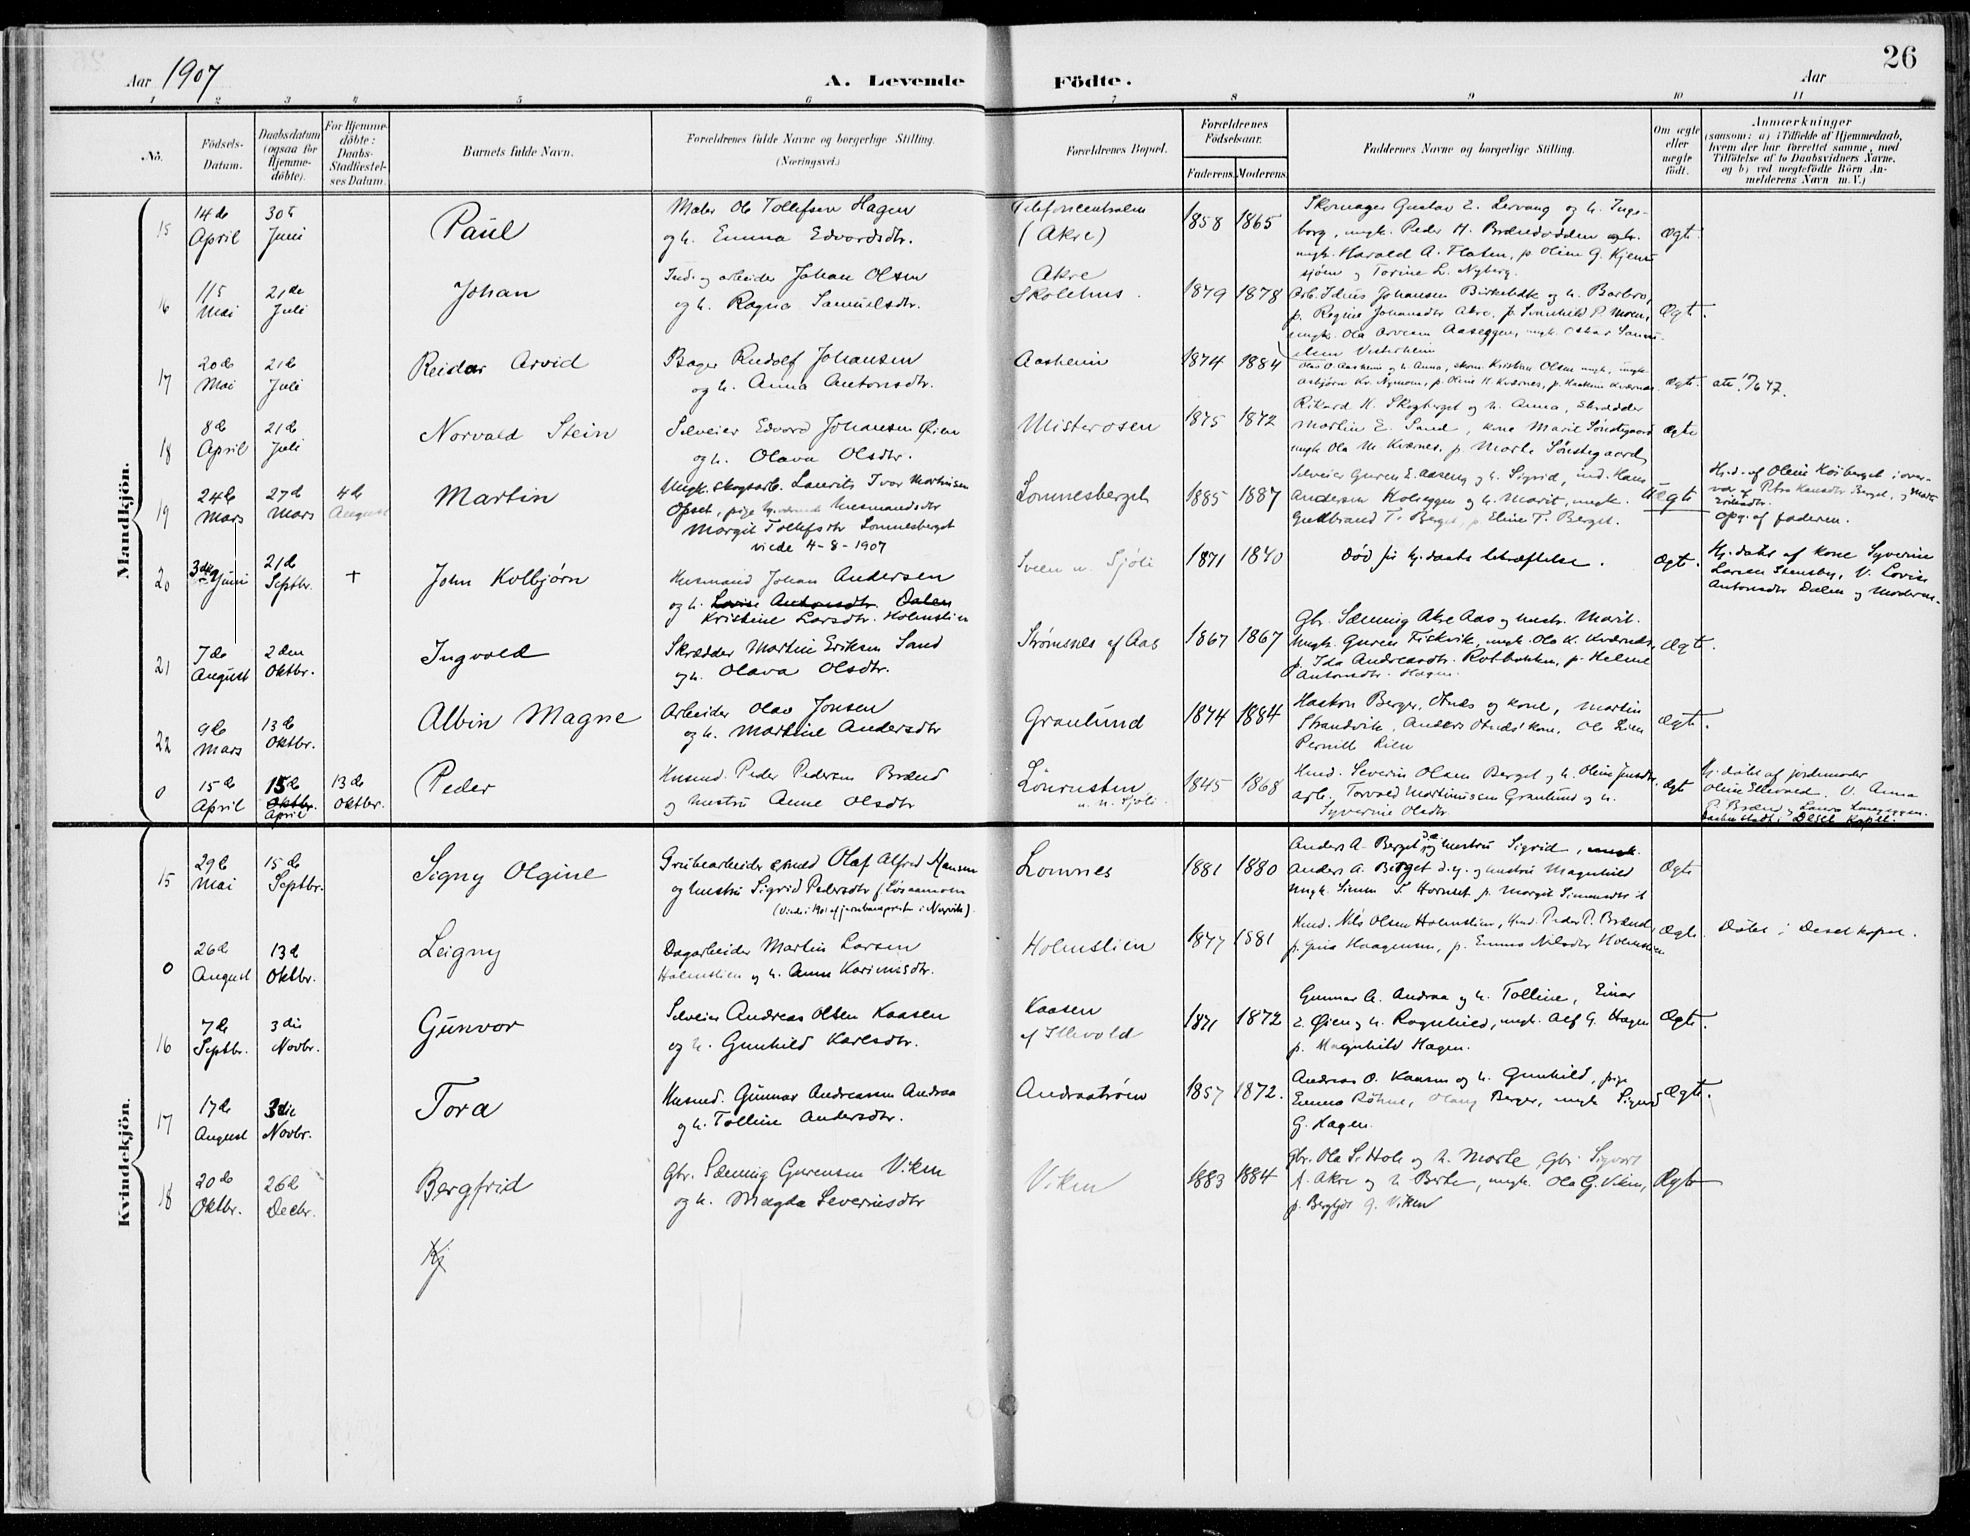 26
Aar 1907
A. Levende Födte.
Aar
1 2 3 4 5 6 7 8 9 10 11
No.
Födsels-Datum.
Daabsdatum (ogsaa for Hjemme-döbte).
For Hjemme-döbte: Daabs-Stadfæstel-ses Datum.
Barnets fulde Navn.
Forældrenes fulde Navne og borgerlige Stilling. (Næringsvei.)
Forældrenes Bopæl.
Forældrenes Födselsaar.
Faderens. Moderens.
Faddernes Navne og borgerlige Stilling.
Om ægte eller uægte födt.
Anmærkninger
(saasom: a) i Tilfælde af Hjemmedaab,
hvem der har forrettet samme, med
Tilföielse af to Daabsvidners Navne,
og b) ved uægtefödte Börn An-
melderens Navn m. V.)
Mandkjön.
15 14de April 30te Juni Paul
Maler Ole Tollefsen Hagen
og h. Emma Edvardsdtr.
Telefoncentralen
(Akre)
1858 1865
Skomager Gustav E. Lervang og h. Inge-
borg, ungk. Peder H. Brænvodden
ungk. Harald A. Floten, p. Oline G. Kjem-
sjøen og Torine L. Nyberg.
Ægte.
16 11/5 Mai 21de Juli Johan
Ind. og arbeider Johan Olsen
og h. Ragna Samuelsdtr.
Akre
Skolehus.
1879 1878
Arb. Idus Johansen Birkebæk og h. Barbro,
p. Regine Johansdtr Akre, p. Svanhild P. Moen,
ungk. Ola Arvesen Aaseggen, ungk. Oskar Samu-
elsen Vesterheim
Ægte.
17 20de Mai 21de Juli Reidar Arvid
Bager Rudolf Johansen
og h. Anna Antonsdtr.
Aasheim
1874 1884
Olav O. Aasheim og h. Anna, skom. Kristian Olsen ungk., ungk.
Asbjørn Kr. Nymoen, p. Oline H. Kværnes, p. Haakine Kværnes
Ægte.
18 8de April 21de Juli Norvald Stein
Selveier Edvard Johansen Øien
og h. Olava Olsdtr.
Misterosen
1875 1872
Rikard H. Skogberget og h. Anna, Skrædder
Martin E. Sand, kone Marit Sønstegaard
ungk. Ola M. Kværnes, p. Marte Sønstegaard
Ægte
19 24de Mars 27de Mars 4de August Martin
Ungk. skogsarb. Laurits Ivar Martinsen
Opset, pige
Margit Tollefsdtr Lomnesberget
viede 4-8-1907
Lomnesberget
1885 1887
Selveier Guren E. Aaseng og h. Sigrid, ind. Hans
Andersen Holseggen og h. Marit, ungk.
Guldbrand T. Berget, p. Eline T. Berget.
Uægte
Hj.d. af Oline Koiberget i over-
vær af Petra Hansdtr Berget, og Marte
Eriksdtr.
Opg. af faderen.
20 3die Juni 21de Septbr. + John Kolbjørn
Husmand Johan Andersen
og h. Lovise Antonsdtr. Dalen
Kristine Larsdtr. Holmstien
Sveen u. Sjøli
1871 1870
Død før hj.daabs bekræftelse.
Ægte.
Hj. døbt af kone Syverine
Larsen Stensby, V. Lovise
Antonsdtr Dalen og Moderen.
21 7de August 2den Oktbr. Ingvald
Skrædder Martin Eriksen Sand
og h. Olava Olsdtr.
Strømsnes af Aas
1867 1867
Gbr. Sæming Akre Aas og hustr. Marit.
Ungk. Guren Fiskvik, ungk. Ola K. Kværnes,
p. Ida Andreasdtr. Rotbakken, p. Helene
Antonsdtr. Hagen.
Ægte.
22 9de Mars 13de Oktbr. Albin Magne
Arbeider Olav Jonsen
og h. Martine Andersdtr
Granlund
1874 1884
Haakon Berger, Otnes og kone, Martin
Strandvik, Anders Otnes' kone, Ole Lien
Pernille Lien
Ægte.
0 15de April 15de Oktbr. April 13de Oktbr. Peder
Husmd. Peder Pedersen Brænd
og hustru Anne Olsdtr
Lönrusten
u. n. Sjöli.
1845 1868
Husd. Severin Olsen Berget og h. Oline Jensdtr.
arb. Torvald Martinussen Granlund og h.
Syverine Olsdtr.
Ægt
Hj. døbt af jordemoder
Oline Ellevold. V. Anna
P. Bræn og Laura Langseggen.
Daaben stadf. i Deset Kapel.
Kvindekjön.
15 29de Mai 15de Septbr. Signy Olgine
Grubearbeider Olaf Alfred Hansen
og hustru Sigrid Pedersdtr f. Løsaamoen
(Viede i 1901 af jernbaneprest i Narvik).
Lomnes
1881 1880
Anders A. Berget og hustru Sigrid, ungk.
Anders A. Berget d.y. og hustru Magnhild
ungk. Simen S. Hornset p. Margit Simensdtr
Ægte
0 26de August 13de Oktbr. Leigny
Dagarbeider Martin Larsen
Holmstien og h. Anne Karinusdtr.
Holmstien
1877 1881
Husd. Nils Olsen Holmstien, Husd. Peder P. Brænd,
p. Gina Haagensen, p. Emma Nilsdtr Holmstien
Ægte.
Døbt i Deset kapel.
16 7de Septbr. 3die Novbr. Gunvor
Selveier Andreas Olsen Kaasen
og h. Gunhild Karlsdtr.
Kaasen
af Illevold
1871 1872
Gunnar A. Andraa og h. Tolline, Einar
E. Øien og h. Ragnhild, ungk. Alf G. Hagen
p. Magnhild Hagen.
Ægte.
17 17de August 3die Novbr. Tora
Husmd. Gunnar Andreassen Andraa
og h. Tolline Andersdtr.
Andraatrøen
1857 1872.
Andreas O. Kaasen og h. Gunhild, pige
Emma Bøhne, Olaug Berger, ungk. Sigurd
G. Hagen.
Ægte.
18 20de Oktbr. 26de Decbr. Bergfrid
Gbr. Sæming Gurensen Viken
og h. Magda Severinsdtr
Viken
1883 1884
Gbr. Ola S. Hole og h. Marte, Gbr. Sigvart
A. Akre og h. Berte, ungk. Ola G. Viken,
p. Bergljot G. Viken
Ægte
Kj